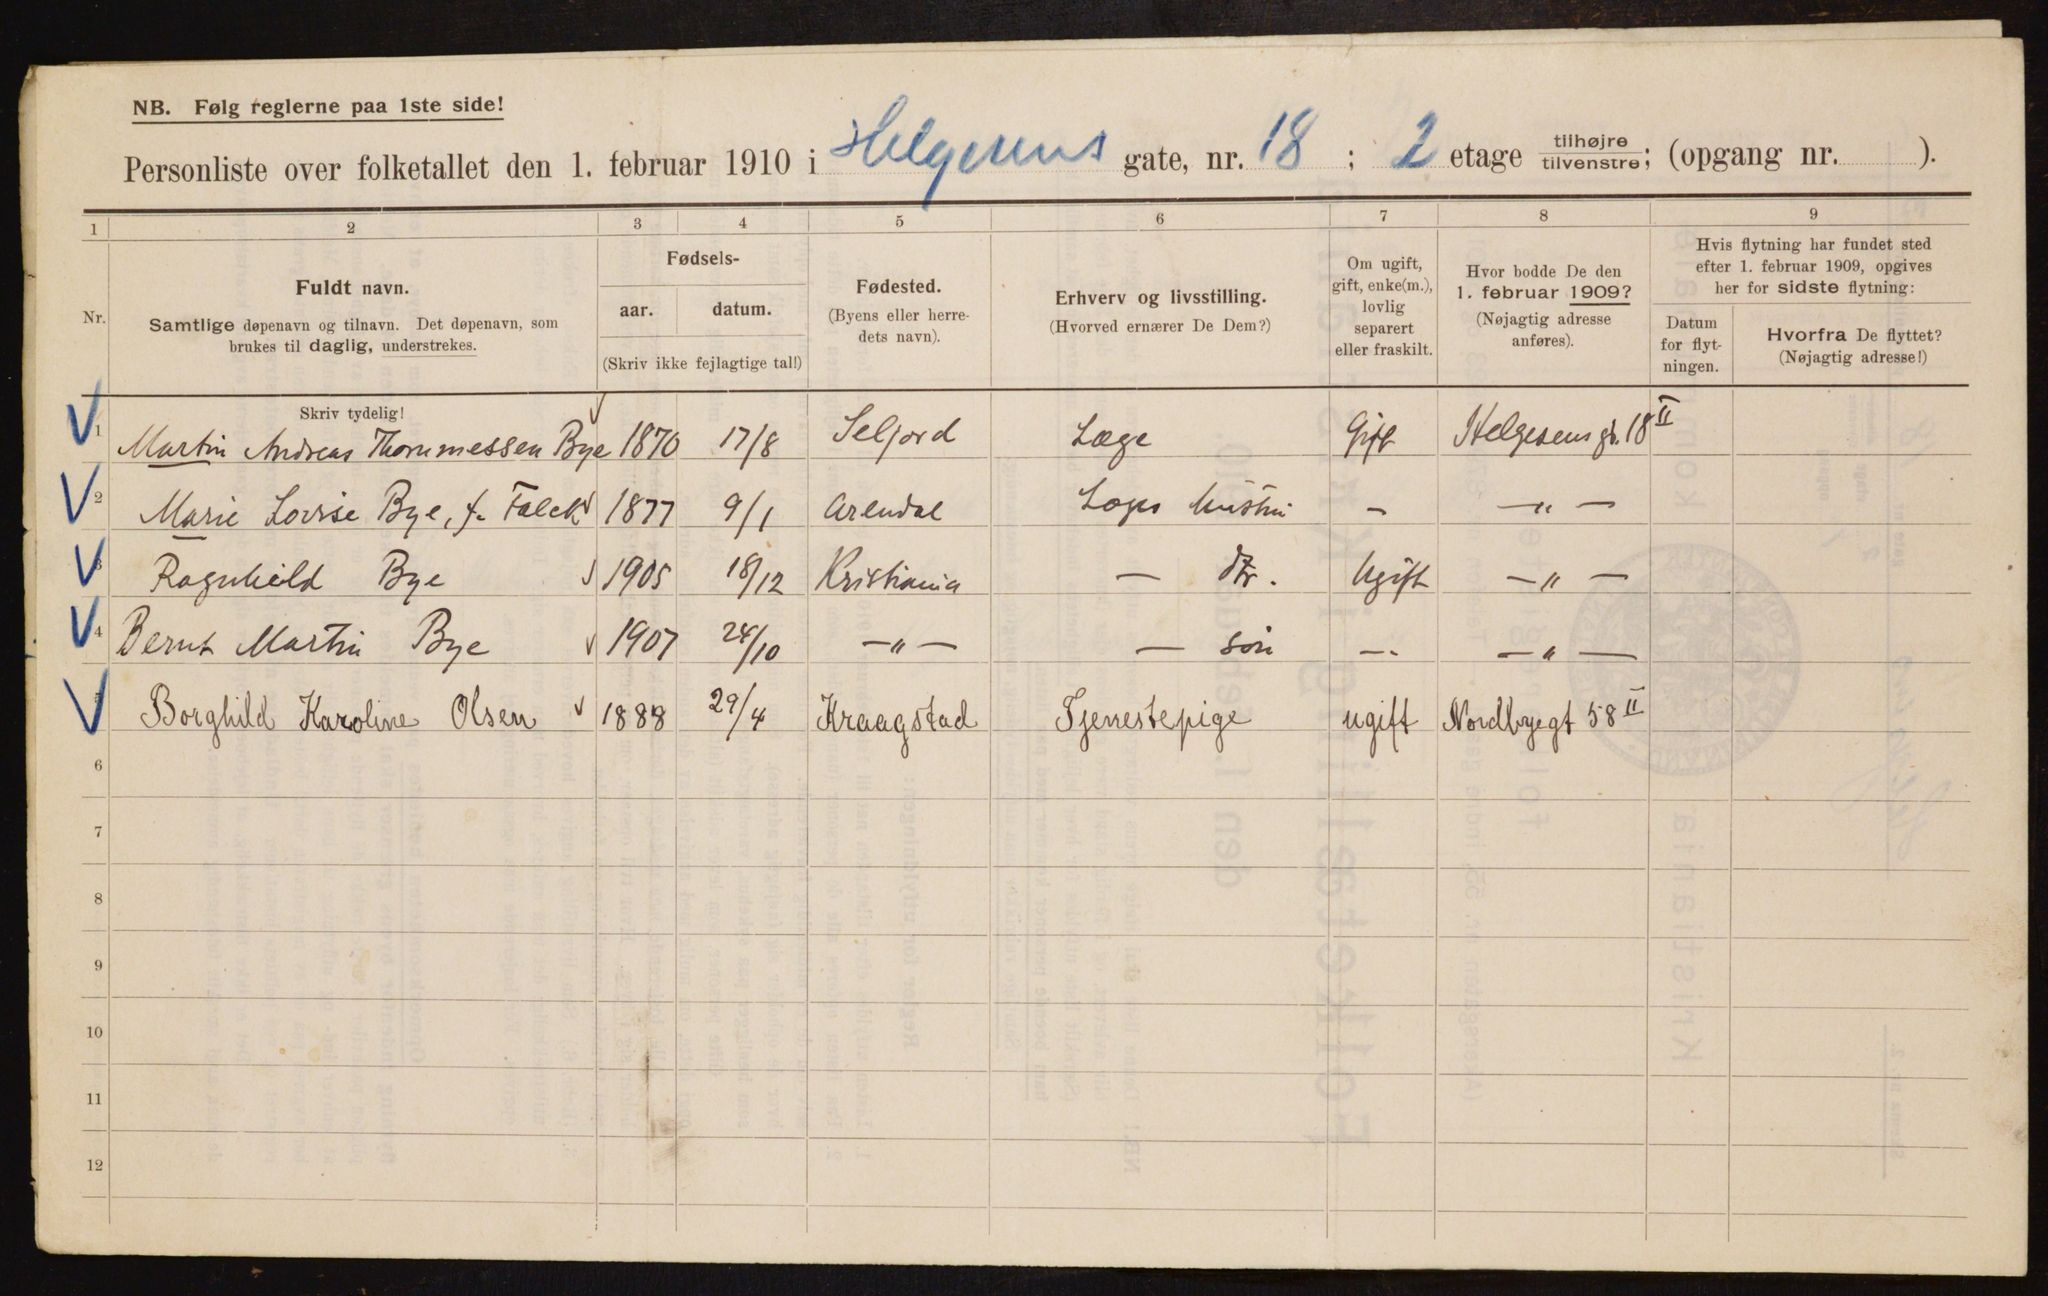 NB. Følg reglerne paa 1ste side!
Personliste over folketallet den 1. februar 1910 i Helgesens gate, nr. 18 ; 2 etage tilhøjre tilvenstre; (opgang nr. ).
1 2 3 4 5 6 7 8 9
Nr.
Fuldt navn.
Samtlige døpenavn og tilnavn. Det døpenavn, som
brukes til daglig, understrekes.
Fødsels-
aar. datum.
(Skriv ikke fejlagtige tal!)
Fødested.
(Byens eller herre-
dets navn).
Erhverv og livsstilling.
(Hvorved ernærer De Dem?)
Om ugift,
gift, enke(m.),
lovlig
separert
eller fraskilt.
Hvor bodde De den
1. februar 1909?
(Nøjagtig adresse
anføres).
Hvis flytning har fundet sted
efter 1. februar 1909, opgives
her for sidste flytning:
Datum
for flyt-
ningen.
Hvorfra De flyttet?
(Nøjagtig adresse!)
Skriv tydelig!
1 Martin Andreas Thommessen Bye 1870 17/8 Seljord Læge Gift Helgesens gt. 18 II
2 Marie Lovise Bye, f. Falck 1877 9/1 Arendal Læges hustru - -"-
3 Ragnhild Bye 1905 18/12 Kristiania - dtr. Ugift -"-
4 Bernt Martin Bye 1907 24/10 -"- - søn -"- -"-
5 Borghild Karoline Olsen 1888 29/4 Kraagstad Tjenestepige ugift Nordbyegt 58 II
6
7
8
9
10
11
12